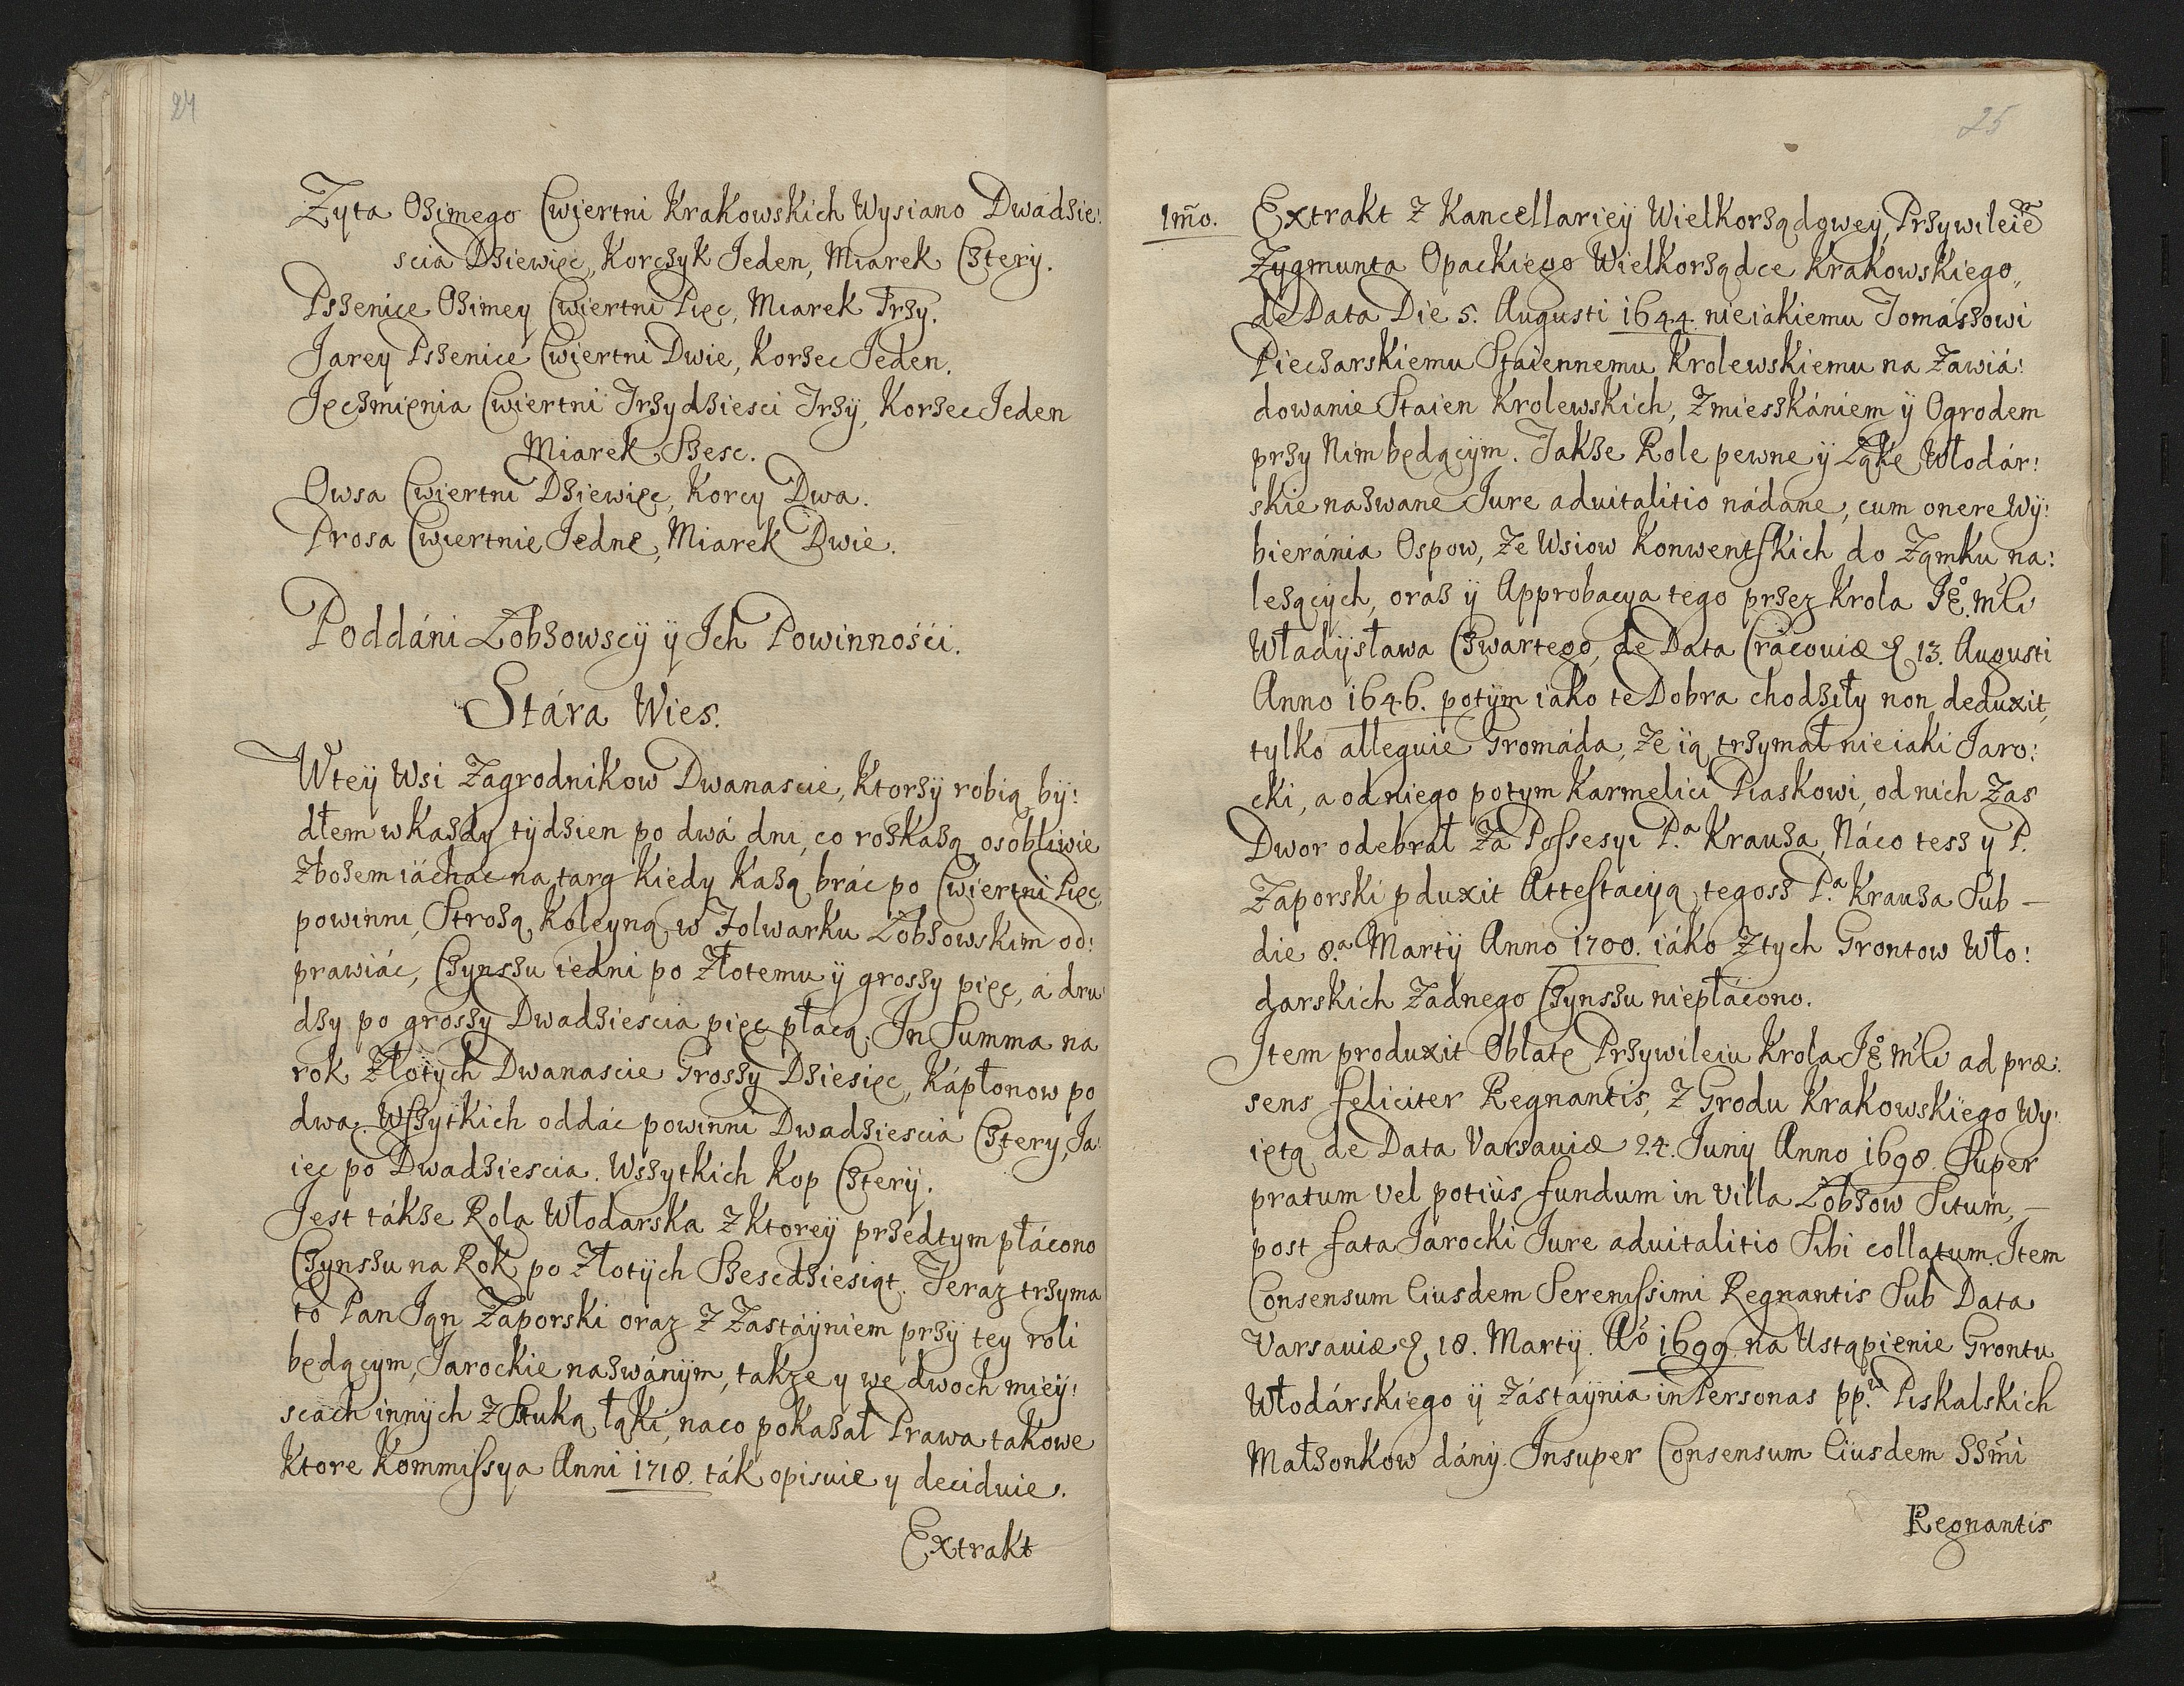 24
Zyta Ozimego Cwiertni Krakowskich Wysiano Dwadzie:
scia Dziewięc, Korczyk Jeden, Miarek Cztery.
Pszenice Ozimey Cwiertni Pięc, Miarek Trzy.
Jarey Pszenice Cwiertni Dwie, Korzec Jeden.
Jęczmięnia Cwiertni Trzydziesci Trzÿ, Korzec Jeden
Miarek Szesc.
Owsa Cwiertni Dziewięc, Korcy Dwa.
Prosa Cwiertnie Jedne, Miarek Dwie.
Poddáni Łobzowscÿ ÿ Ich Powinnośći.
Stára Wies.
Wteÿ Wsi Zagrodnikow Dwanascie, Ktorzÿ robią bÿ:
dłem w Kazdy tÿdzien po dwá dni, co rozkazą osobliwie
Zbozem iácháć na targ Kiedy Kazą bráć po Cwiertni Pięc,
powinni, Strozą Koleyną w Folwarku Łobzowskim od:
prawiáć, Czynszu iedni po Złotemu ÿ groszy pięc, á dru
dzy po groszy Dwadziescia pięc płacą. In Summa na
rok Złotÿch Dwanascie Groszy Dziesięc, Kápłonow po
dwa. Wszytkich oddáć powinni Dwadziescia Cztery, Ja:
iec po Dwadziescia. Wszytkich Kop Czterÿ.
Jest tákze Rola Włodarska z Ktoreÿ przedtym płácono
Czynszu na Rok po Złotÿch Szescdziesiąt. Teraz trzyma
to Pan Jan Zaporski oraz Z Zastáÿniem przÿ tey roli
będącym, Jarockie nazwánÿm, takze y we dwoch mieÿ:
scach innÿch Z Sztuką łąki, naco pokazał Prawa takowe
Ktore Kommissya Anni 1718. ták opisuie y deciduie.
Extrakt
25
1mo. Extrakt Z Kancellarieÿ Wielkorządowey, Przywileie
Zygmunta Opackiego Wielkorządce Krakowskiego,
de Data Die 5. Augusti 1644. nieiakiemu Tomászowi
Piecharskiemu Staiennemu Krolewskiemu na Zawiá:
dowanie Staien Krolewskich, Zmieszkániem ÿ Ogrodem
przy Nim będącÿm. Takze Role pewne ÿ Łąke Włodár:
skie nazwane Jure aduitalitio nádane, cum onere Wÿ:
bieránia Ospow, Ze Wsiow Konwentskich do Zamku na:
lezącÿch, oraz ÿ Approbacya tego przez Krola Jeº Mci
Władÿsława Czwartego, de Data Cracouiæ 13. Augusti
Anno 1646. potÿm iako te Dobra chodziły non deduxit,
tylko alleguie Gromáda, Ze ią trzymał nieiaki Jaro:
cki, a od niego potym Karmelici Piaskowi, od nich Zas
Dwor odebrał Za Possesyi Pª Krauza, Náco tesz y P.
Zaporski pduxit Attestacyą tegosz Pª Krauza Sub –
die 8.ª Martÿ Anno 1700. iáko Ztych Grontow Wło:
darskich Zadnego Czynszu niepłácono.
Item produxit Oblatę Przywileiu Krola Jeº Mci ad præ:
sens feliciter Regnantis, Z Grodu Krakowskiego Wy:
iętą de Data Varsauiæ 24. Juny Anno 1698. Super
pratum vel potiùs fundum in Villa Łobzow Situm, –
post fata Jarocki Jure aduitalitio Sibi collatum. Item
Consensum Eiusdem Serenissimi Regnantis Sub Data
Varsauiæ 18. Martÿ. Aº 1699. na Ustąpienie Grontu
Włodárskiego ÿ Zástáÿnia in Personas pp. Piskalskich
Małzonkow dány. Insuper Consensum Eiusdem SSmi
Regnantis